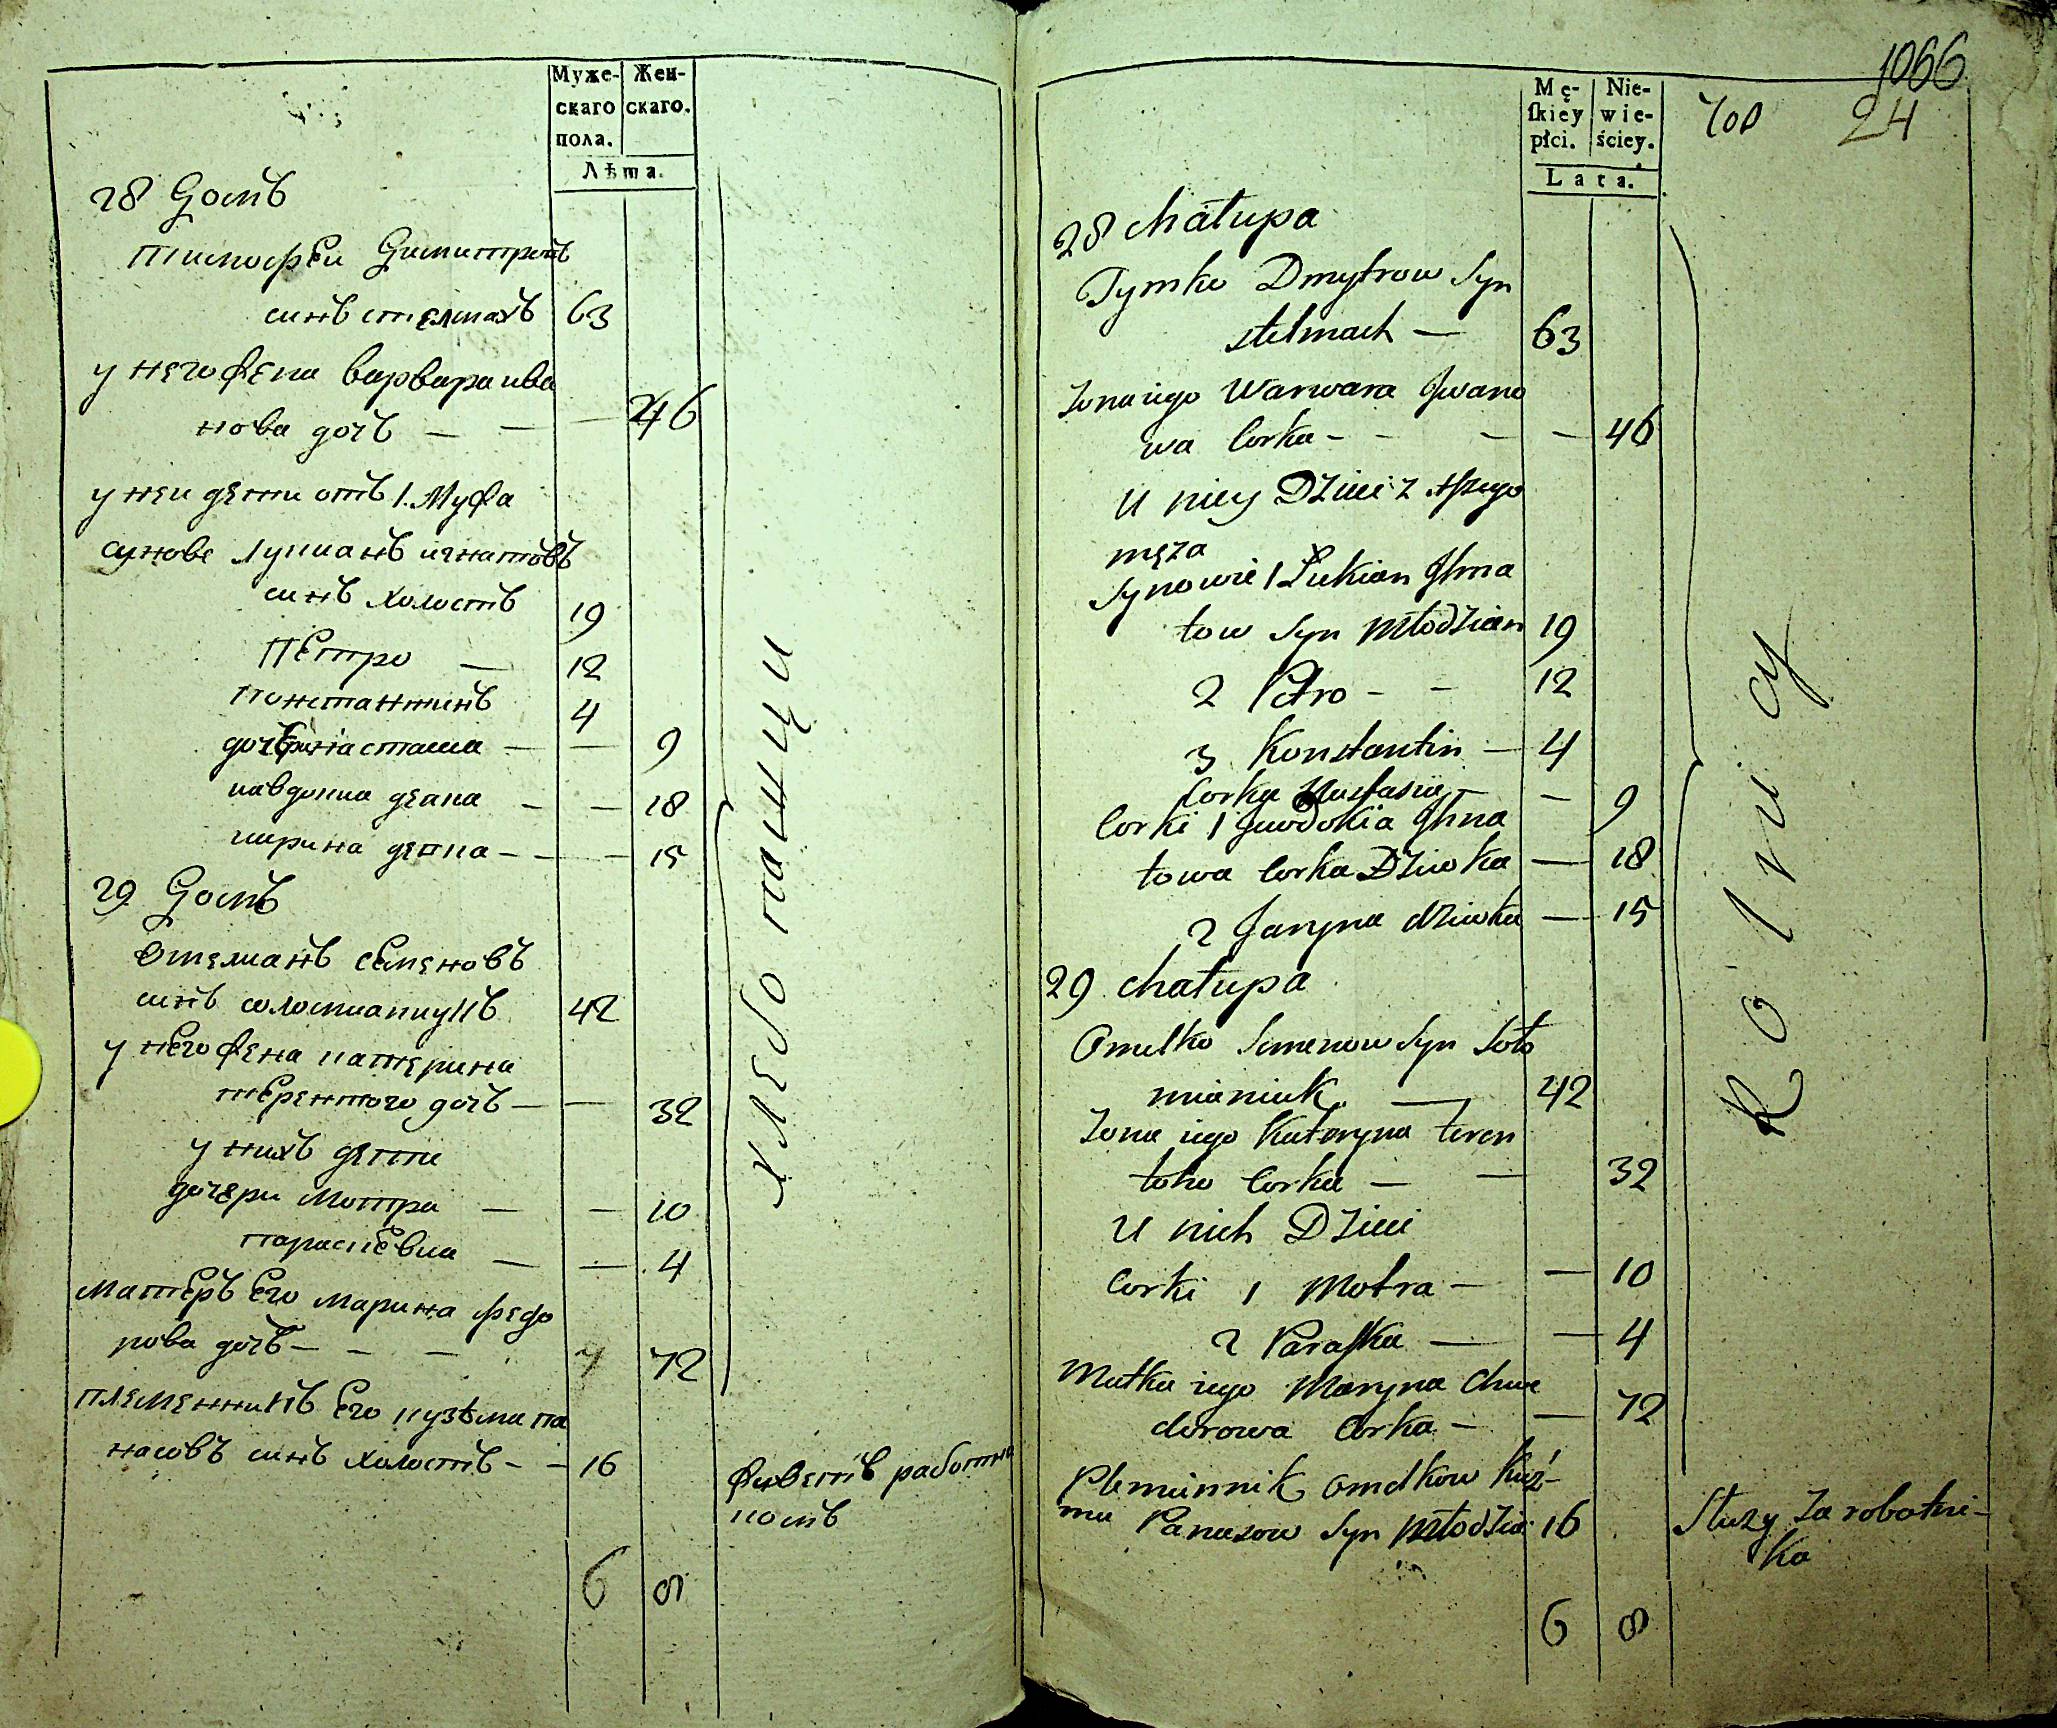 Муже-
скаго
пола.
Жен-
скаго.
Лѣта.
28 Домъ
Тимофеи Димитровъ
синъ стелмахъ 63
у него жена варвара ива
нова дочъ — — — 46
у неи дети отъ 1. мужа
сунове лукианъ игнатовъ
синъ холостъ 19
петро — 12
константинъ 4
дочъ настасиа — — 9
иавдокиа девка — — 18
ирина девка — — — 15
29 Домъ
Омелианъ семеновъ
синъ соломианиукъ 42
у него жена катерина
терентого дочъ — — 32
у нихъ дети
дочери мотра — — 10
параскевиа — — 4
матеръ его марина федо
рова дочъ — — — 72
племенникъ его кузьма па
насовъ синъ холостъ — — 16
6 8
хлебопашци
живетъ работни
комъ
1066
24
Mę-
skiey
płci.
Nie-
wie-
ściey.
Lata.
28 chałupa
Tymko Dmytrow Syn
stelmach — 63
Zona iego Warwara Iwano
wa Corka — — — — 46
U niey Dzieci z 1szego
męża
Synowie 1 Łukian Ihna
tow Syn Młodzian 19
2 Petro — — 12
3 Konstantin — 4
Corka Nastasia — — 9
Corki 1 Jewdokia Ihna
towa Corka Dziwka — 18
2 Jaryna dziwka — 15
29 chałupa
Omelko Semenow Syn Soło
mianiuk — 42
Zona iego Kateryna teren
toho Corka — — 32
U nich Dzieci
Corki 1 Motra — — 10
2 Paraska — — 4
Matka iego Maryna Chwe
dorowa Corka — — 72
Plemiennik omelkow Kuź-
ma Panasow Syn Młodzia 16
6 8
Rolnicy
Służy za robotni-
ka